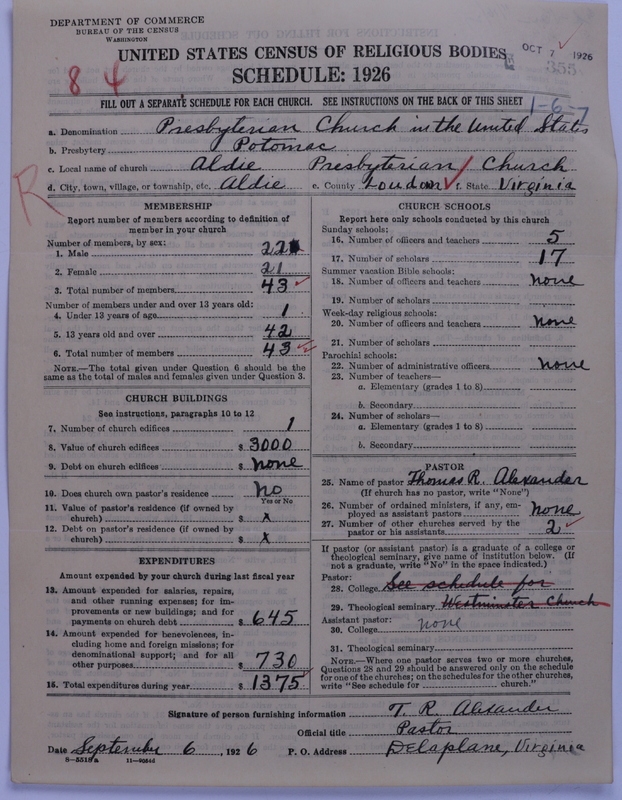 DEPARTMENT OF COMMERCE
BUREAU OF THE CENSUS
WASHINGTON
UNITED STATES CENSUS OF RELIGIOUS BODIES
SCHEDULE: 1926
OCT 7 1926
355
84
FILL OUT A SEPARATE SCHEDULE FOR EACH CHURCH. SEE INSTRUCTIONS ON THE BACK OF THIS SHEET
1-6-7
a. Denomination Presbyterian Church in the United States
b. Presbytery Potomac
c. Local name of church Aldie Presbyterian Church
R
d. City, town, village, or township, etc. Aldie e. County Loudon f. State Virginia
MEMBERSHIP
Report number of members according to definition of
member in your church
Number of members, by sex:
1. Male 22
2. Female 21
3. Total number of members 43
Number of members under and over 13 years old:
4. Under 13 years of age 1
5. 13 years old and over 42
6. Total number of members 43
NOTE.—The total given under Question 6 should be
same as the total of males and females given under Question 3.
CHURCH BUILDINGS
See instructions, paragraphs 10 to 12
7. Number of church edifices 1
8. Value of church edifices $ 3000
9. Debt on church edifices $ none
10. Does church own pastor's residence No
Yes or No
11. Value of pastor's residence (if owned by
church) $ x
12. Debt on pastor's residence (if owned by
church) $ x
EXPENDITURES
Amount expended by your church during last fiscal year
13. Amount expended for salaries, repairs,
and other running expenses; for im-
provements or new buildings; and for
payments on church debt $ 645
14. Amount expended for benevolences, in-
cluding home and foreign missions; for
denominational support; and for all
other purposes $ 730
15. Total expenditures during year $ 1375
CHURCH SCHOOLS
Report here only schools conducted by this church
Sunday schools:
16. Number of officers and teachers 5
17. Number of scholars 17
Summer vacation Bible schools:
18. Number of officers and teachers none
19. Number of scholars
Week-day religious schools:
20. Number of officers and teachers none
21. Number of scholars
Parochial schools:
22. Number of administrative officers none
23. Number of teachers—
a. Elementary (grades 1 to 8)
b. Secondary
24. Number of scholars—
a. Elementary (grades 1 to 8)
b. Secondary
PASTOR
25. Name of pastor Thomas R. Alexander
(If church has no pastor, write "None")
26. Number of ordained ministers, if any, em-
ployed as assistant pastors none
27. Number of other churches served by the
pastor or his assistants 2
If pastor (or assistant pastor) is a graduate of a college or
theological seminary, give name of institution below. (If
not a graduate, write "No" in the space indicated.)
Pastor:
28. College See schedule for
29. Theological seminary Westminster Church
Assistant pastor:
30. College none
31. Theological seminary
NOTE.—Where one pastor serves two or more churches,
Questions 28 and 29 should be answered only on the schedule
for one of the churches; on the schedules for the other churches,
write "See schedule for church."
Signature of person furnishing information T. R. Alexander
Official title Pastor
Date September 6, 1926 P. O. Address Delaplane, Virginia
8-5518a 11-9064d